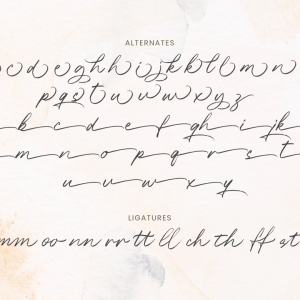 ALTERNATES
c d e g h h i j k k l l m n
p q s t u v w w x y z
b c d e f g h i j k
m n o p q r s t
u v w x y
LIGATURES
mm oo nn rr tt ll ch th ff st